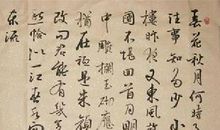 春花秋月何時了
往事知多少小
樓昨夜又東風故
國不堪回首月明
中雕闌玉砌應
猶在只是朱顏
改問君能有幾多
愁恰似一江春水向
東流